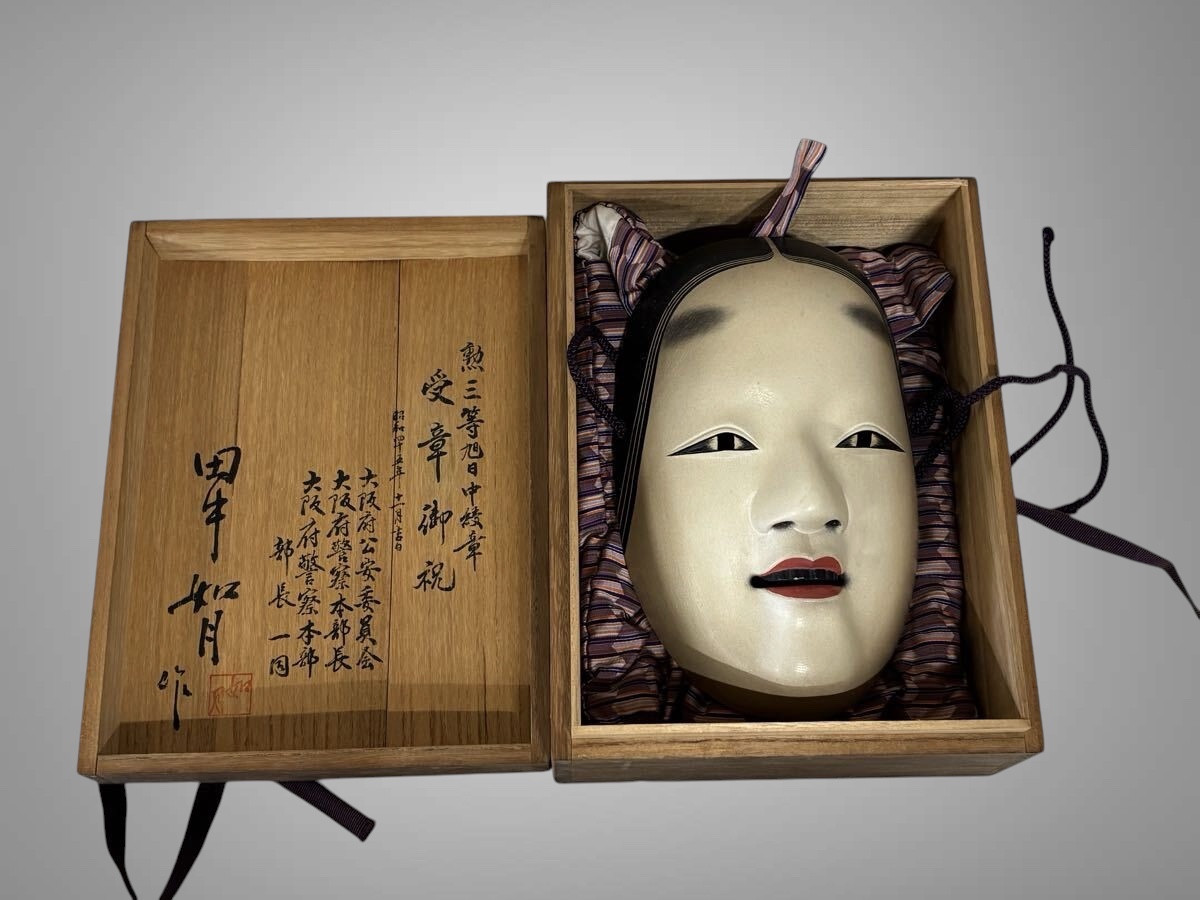 勲三等旭日中綬章
受章御祝
昭和四十五年十一月吉日
大阪府公安委員会
大阪府警察本部長
大阪府警察本部
部長一同
如月
作